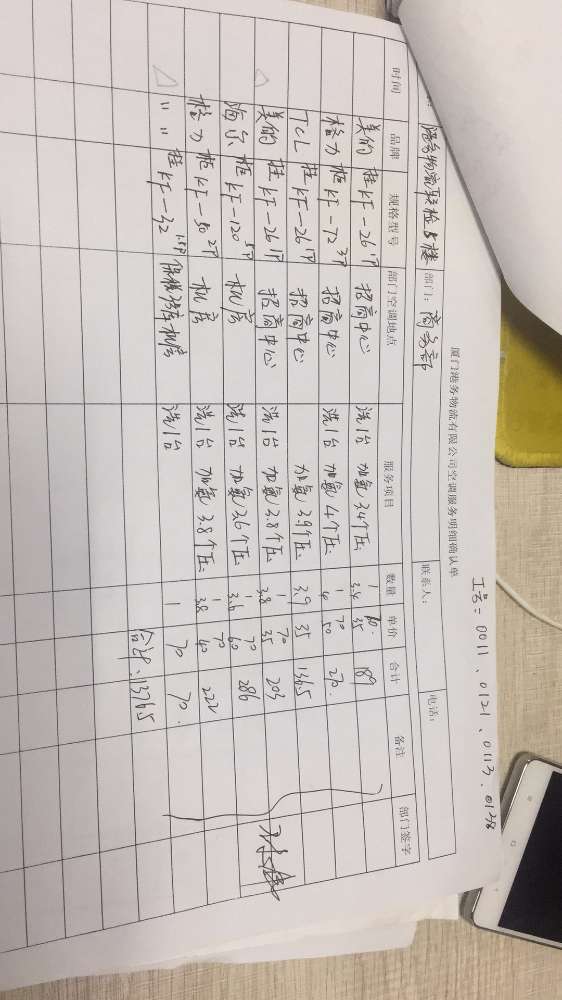 工号：0011、0121、0113、0138
厦门港务物流有限公司空调服务明细确认单
港务物流 检 5楼 部门：商务部 联系人： 电话：
时间 品牌 规格型号 部门空调地点 服务项目 数量 单价 合计 备注 部门签字
美的 挂KF-26 1P 招商中心 洗1台 加氟3.4个压 1 3.4 35 189
格力 柜KF-72 3P 招商中心 洗1台 加氟4个压 1 4 70 50 270.
TCL 挂KF-26 1P 招商中心 加氟3.9个压 3.9 35 136.5
美的 挂KF-26 1P 招商中心 洗1台 加氟3.8个压 1 3.8 70 35 203
海尔 柜KF-120 5P 机房 洗1台 加氟3.6个压 1 3.6 70 60 286
格力 柜KF-50 2P 机房 洗1台 加氟3.8个压 1 3.8 70 40 222
〃 〃 挂KF-32 1.5P 机房 洗1台 1 70 70.
合计：1376.5